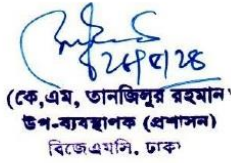 ২৮/৭/২৪
(কে,এম, তানজিলুর রহমান)
উপ-ব্যবস্থাপক (প্রশাসন)
বিজেএমসি, ঢাকা